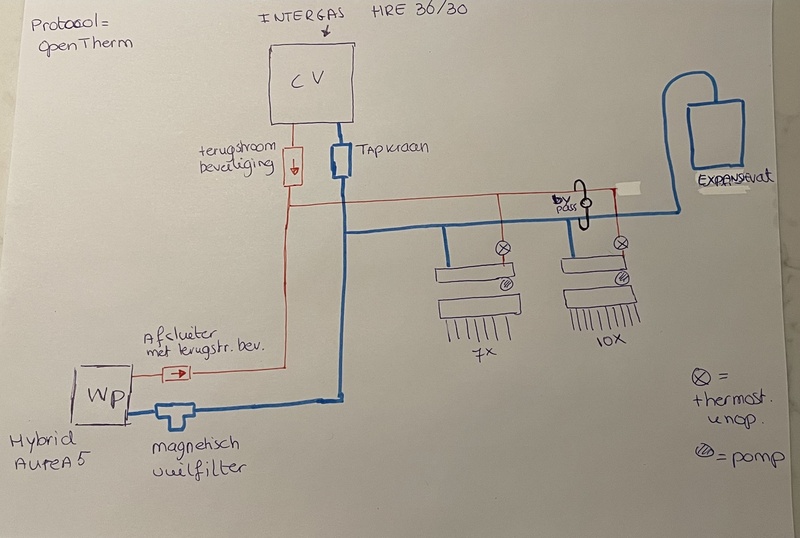 Protocol=
OpenTherm
INTERGAS HRE 36/30
CV
terugstroom
beveiliging
TAPKRAAN
EXPANSIEvat
by
pass
Afsluiter
met terugstr. bev.
WP
7x
10x
Hybrid
AureA 5
magnetisch
vuilfilter
= thermost.
knop.
= pomp